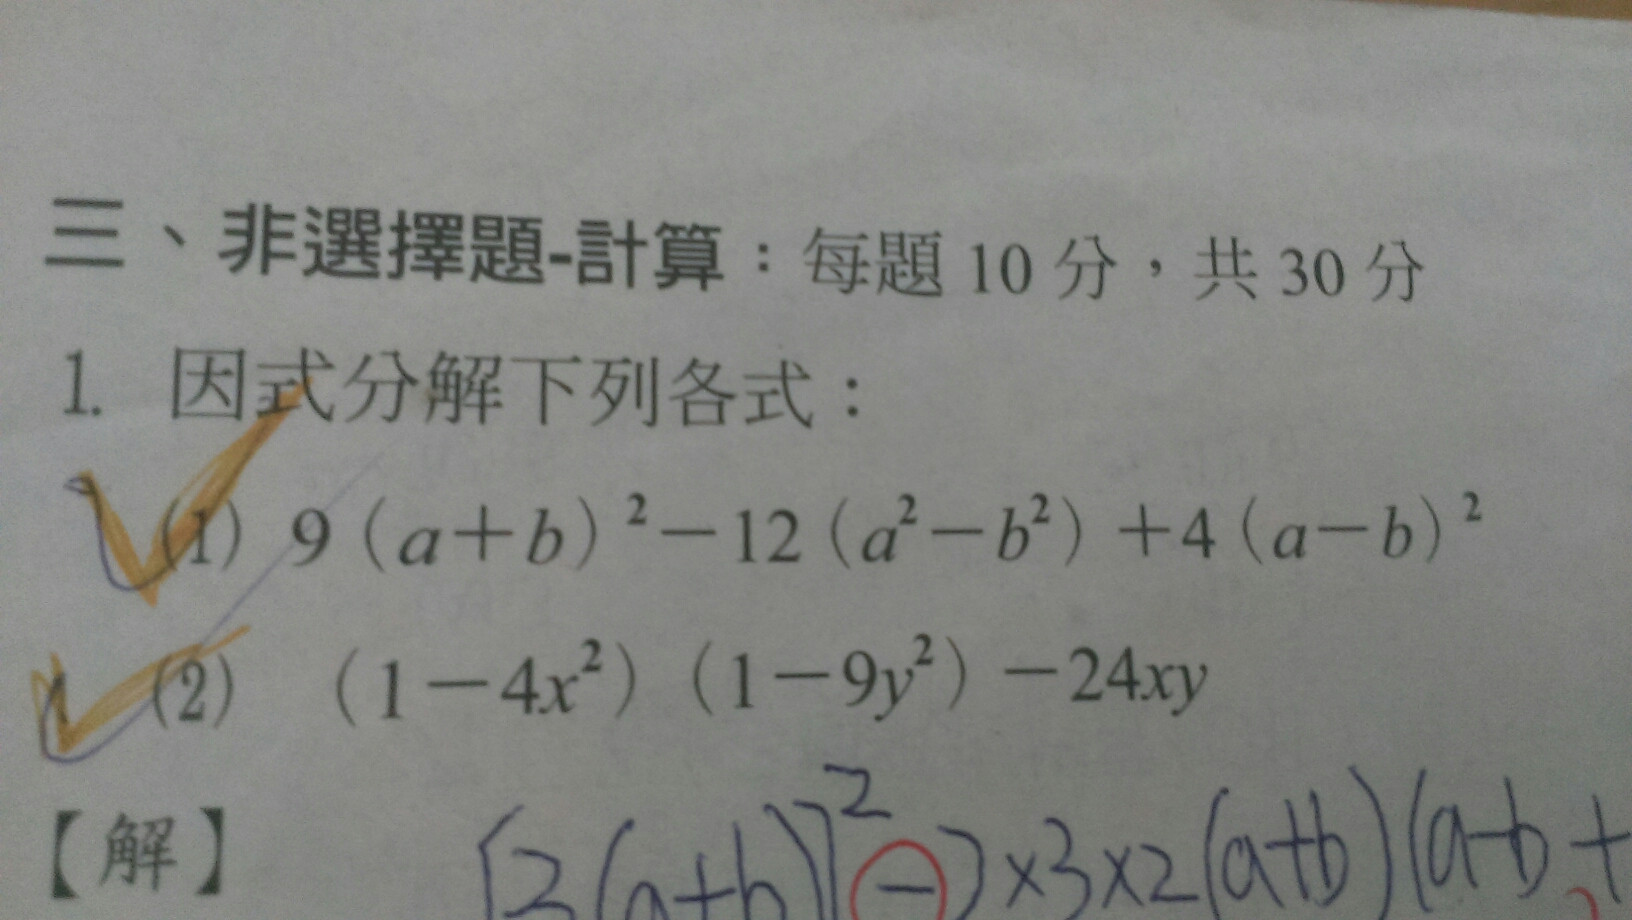 三、非選擇題-計算：每題 10 分，共 30 分
1. 因式分解下列各式：
(1) 9（a＋b）²－12（a²－b²）＋4（a－b）²
(2) （1－4x²）（1－9y²）－24xy
【解】 [3(a+b)]² - 2×3×2(a+b)(a-b +